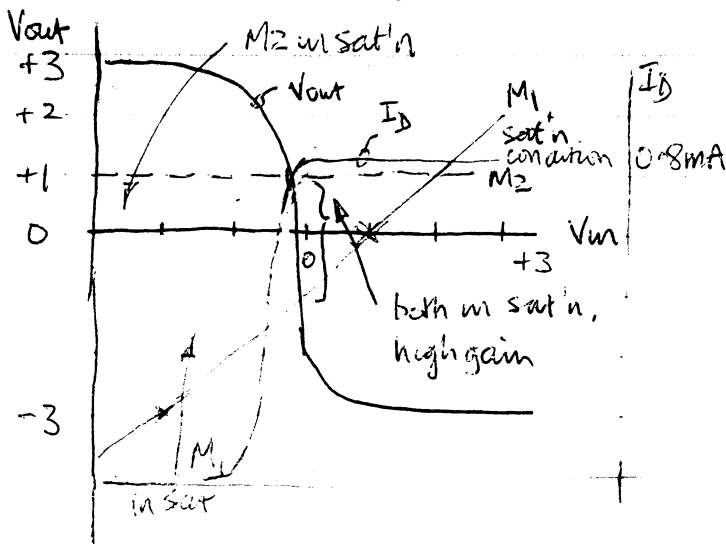 Vout
+3
+2
+1
0
-3
M2 in sat'n
Vout
ID
M1
sat'n
condition
M2
ID
0.8mA
Vin
0
+3
both in sat'n,
high gain
M1
in sat